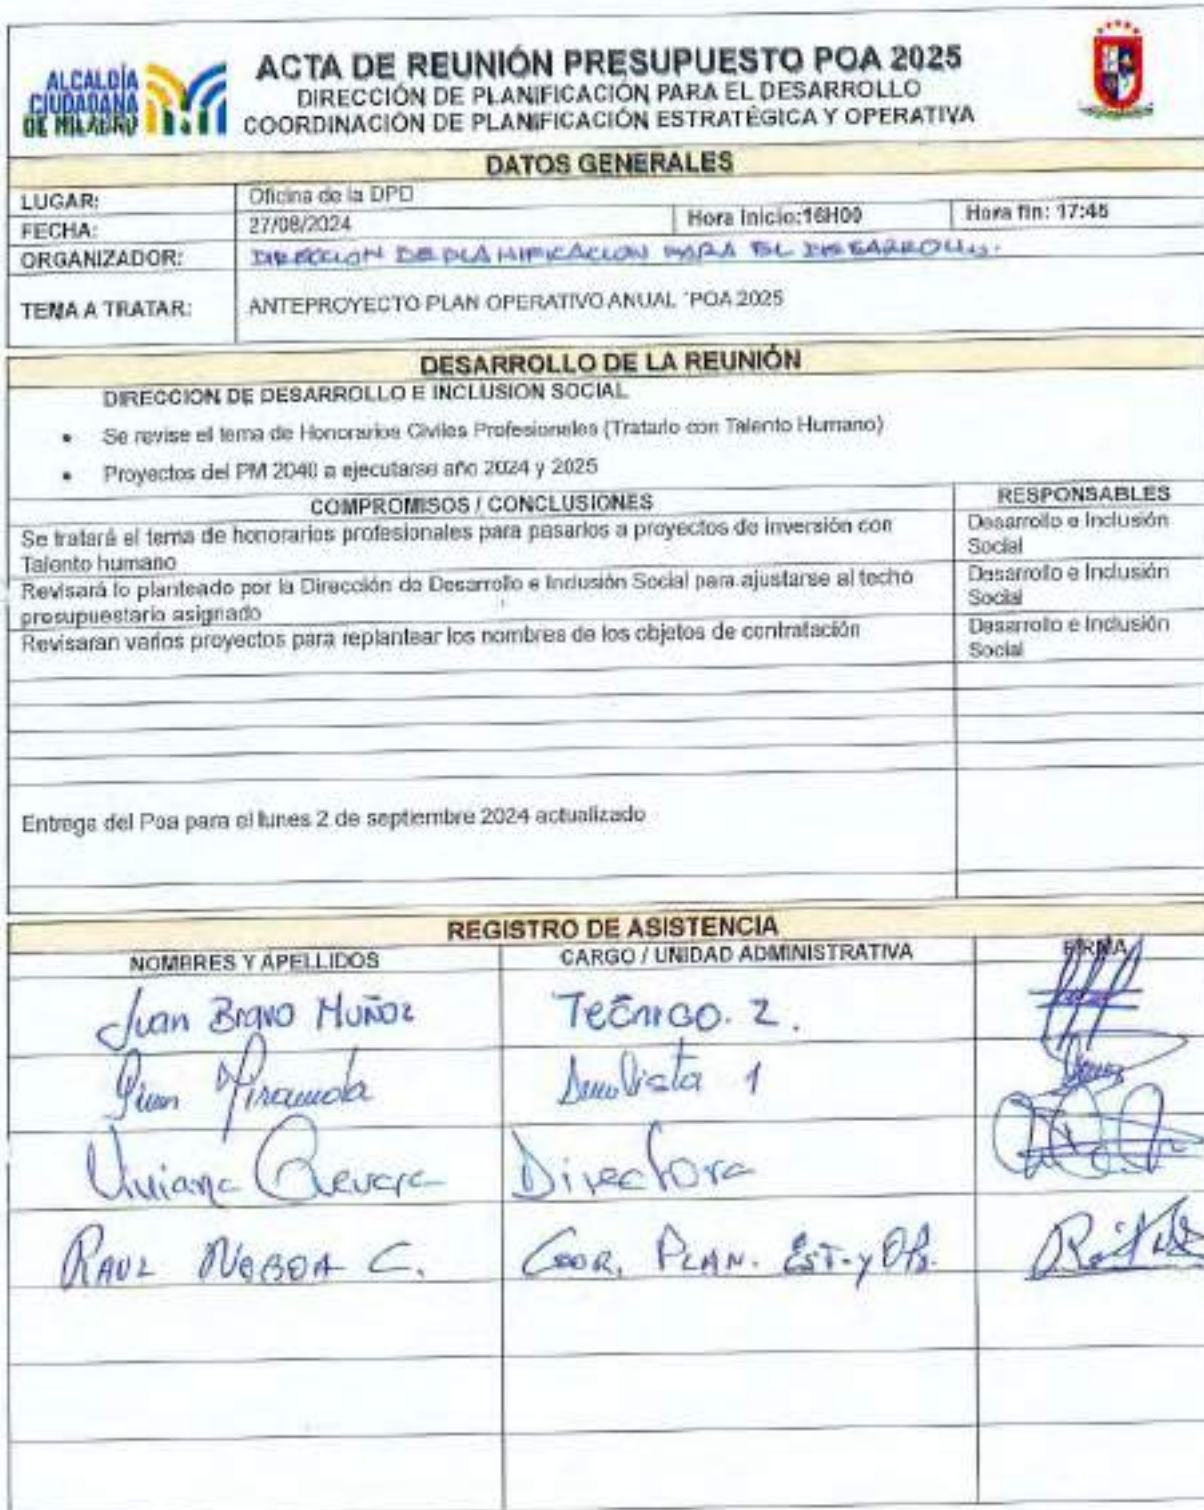 ALCALDÍA
CIUDADANA
DE MILAGRO
ACTA DE REUNIÓN PRESUPUESTO POA 2025
DIRECCIÓN DE PLANIFICACIÓN PARA EL DESARROLLO
COORDINACIÓN DE PLANIFICACIÓN ESTRATÉGICA Y OPERATIVA
DATOS GENERALES
LUGAR: Oficina de la DPD
FECHA: 27/08/2024 Hora Inicio:16H00 Hora fin: 17:45
ORGANIZADOR: DIRECCION DE PLANIFICACION PARA EL DESARROLLO.
TEMA A TRATAR: ANTEPROYECTO PLAN OPERATIVO ANUAL ¨POA 2025
DESARROLLO DE LA REUNIÓN
DIRECCION DE DESARROLLO E INCLUSION SOCIAL
• Se revise el tema de Honorarios Civiles Profesionales (Tratarlo con Talento Humano)
• Proyectos del PM 2040 a ejecutarse año 2024 y 2025
COMPROMISOS / CONCLUSIONES RESPONSABLES
Se tratará el tema de honorarios profesionales para pasarlos a proyectos de inversión con
Talento humano
Desarrollo e Inclusión
Social
Revisará lo planteado por la Dirección de Desarrollo e Inclusión Social para ajustarse al techo
presupuestario asignado
Desarrollo e Inclusión
Social
Revisaran varios proyectos para replantear los nombres de los objetos de contratación
Desarrollo e Inclusión
Social
Entrega del Poa para el lunes 2 de septiembre 2024 actualizado
REGISTRO DE ASISTENCIA
NOMBRES Y APELLIDOS CARGO / UNIDAD ADMINISTRATIVA FIRMA
Juan Bravo Muñoz Técnico. 2.
Miranda 1
Viviana Directora
RAUL NOBOA C. COOR. PLAN. EST. y OP.